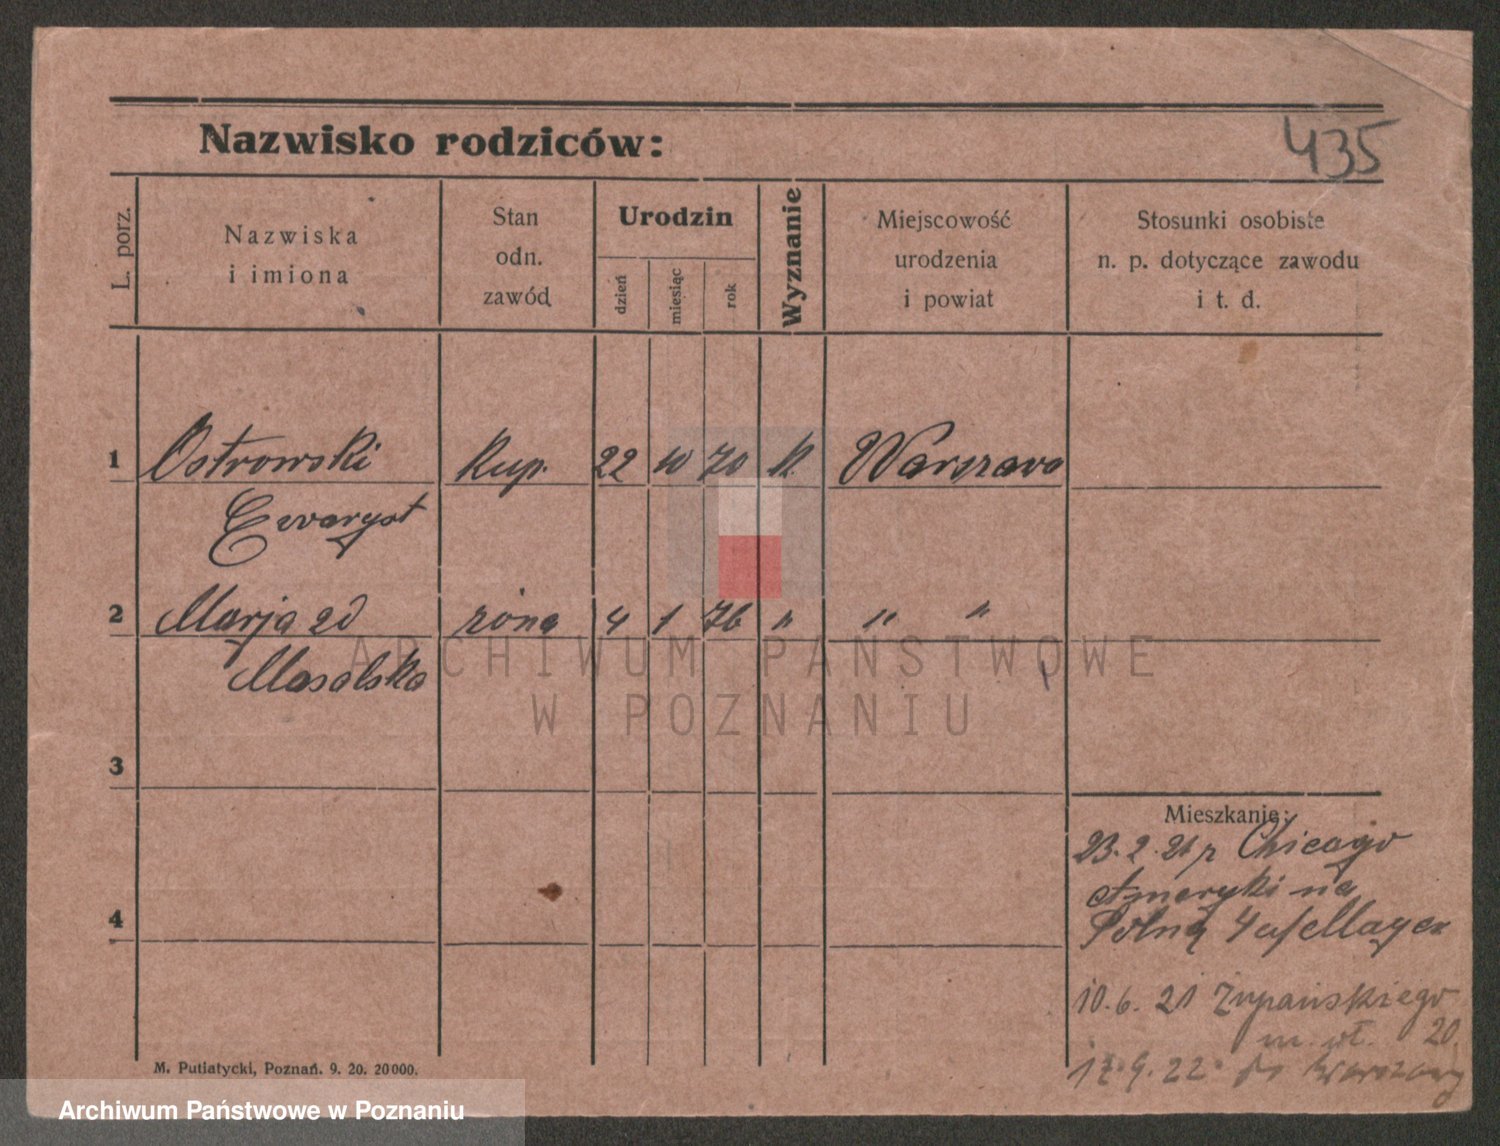 Nazwisko rodziców:
435
L. porz.
Nazwiska
i imiona
Stan
odn.
zawód
Urodzin
dzień
miesiąc
rok
Wyznanie
Miejscowość
urodzenia
i powiat
Stosunki osobiste
n. p. dotyczące zawodu
i t. d.
1 Ostrowski kup. 22 10 70 k. Warszawa
Ewaryst
2 Marja zd żona 4 1 76 " " "
Masalska
ARCHIWUM PAŃSTWOWE
W POZNANIU
3
4
Mieszkanie:
23.2.21 z Chicago
Ameryki na
Polną 4
10.6.21 Żupańskiego
m. wł. 20.
9.22 do Warszawy
M. Putiatycki, Poznań. 9. 20. 20000.
Archiwum Państwowe w Poznaniu